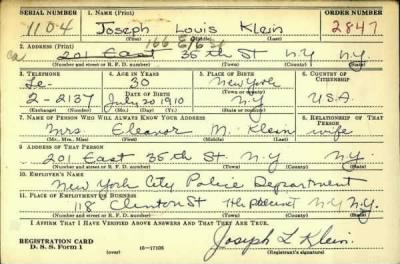 SERIAL NUMBER 1. NAME (Print) ORDER NUMBER
1104 Joseph Louis Klein 2847
(First) (Middle) (Last)
2. ADDRESS (Print)
201 East 35th St N.Y N.Y
(Number and street or R. F. D. number) (Town) (County) (State)
3. TELEPHONE 4. AGE IN YEARS 5. PLACE OF BIRTH 6. COUNTRY OF CITIZENSHIP
Le- 30 New York
DATE OF BIRTH (Town or county)
2-2137 July 20 1910 N.Y U.S.A.
(Exchange) (Number) (Mo.) (Day) (Yr.) (State or country)
7. NAME OF PERSON WHO WILL ALWAYS KNOW YOUR ADDRESS 8. RELATIONSHIP OF THAT PERSON
Mrs. Eleanor M. Klein wife
(Mr., Mrs., Miss) (First) (Middle) (Last)
9. ADDRESS OF THAT PERSON
201 East 35th St. N.Y NY
(Number and street or R. F. D. number) (Town) (County) (State)
10. EMPLOYER'S NAME
New York City Police Department
11. PLACE OF EMPLOYMENT OR BUSINESS
118 Clinton St 7th Precinct N.Y N.Y.
(Number and street or R. F. D. number) (Town) (County) (State)
I AFFIRM THAT I HAVE VERIFIED ABOVE ANSWERS AND THAT THEY ARE TRUE.
REGISTRATION CARD
D. S. S. Form 1 (over) 16-17105 Joseph L Klein.
(Registrant's signature)